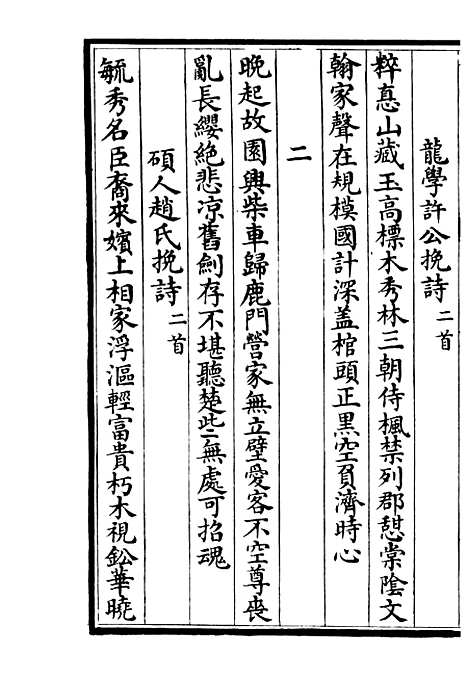 龍學許公挽詩二首
粹惪山藏玉高標木秀林三朝侍楓禁列郡憇棠陰文
翰家聲在規模國計深盖棺頭正黒空負濟時心
二
晚起故園興柴車歸鹿門營家無立壁愛客不空尊丧
亂長纓絶悲凉舊劍存不堪聽楚些無處可招魂
碩人趙氏挽詩二首
毓秀名臣裔來嬪上相家浮漚輕富貴朽木視鈆華曉